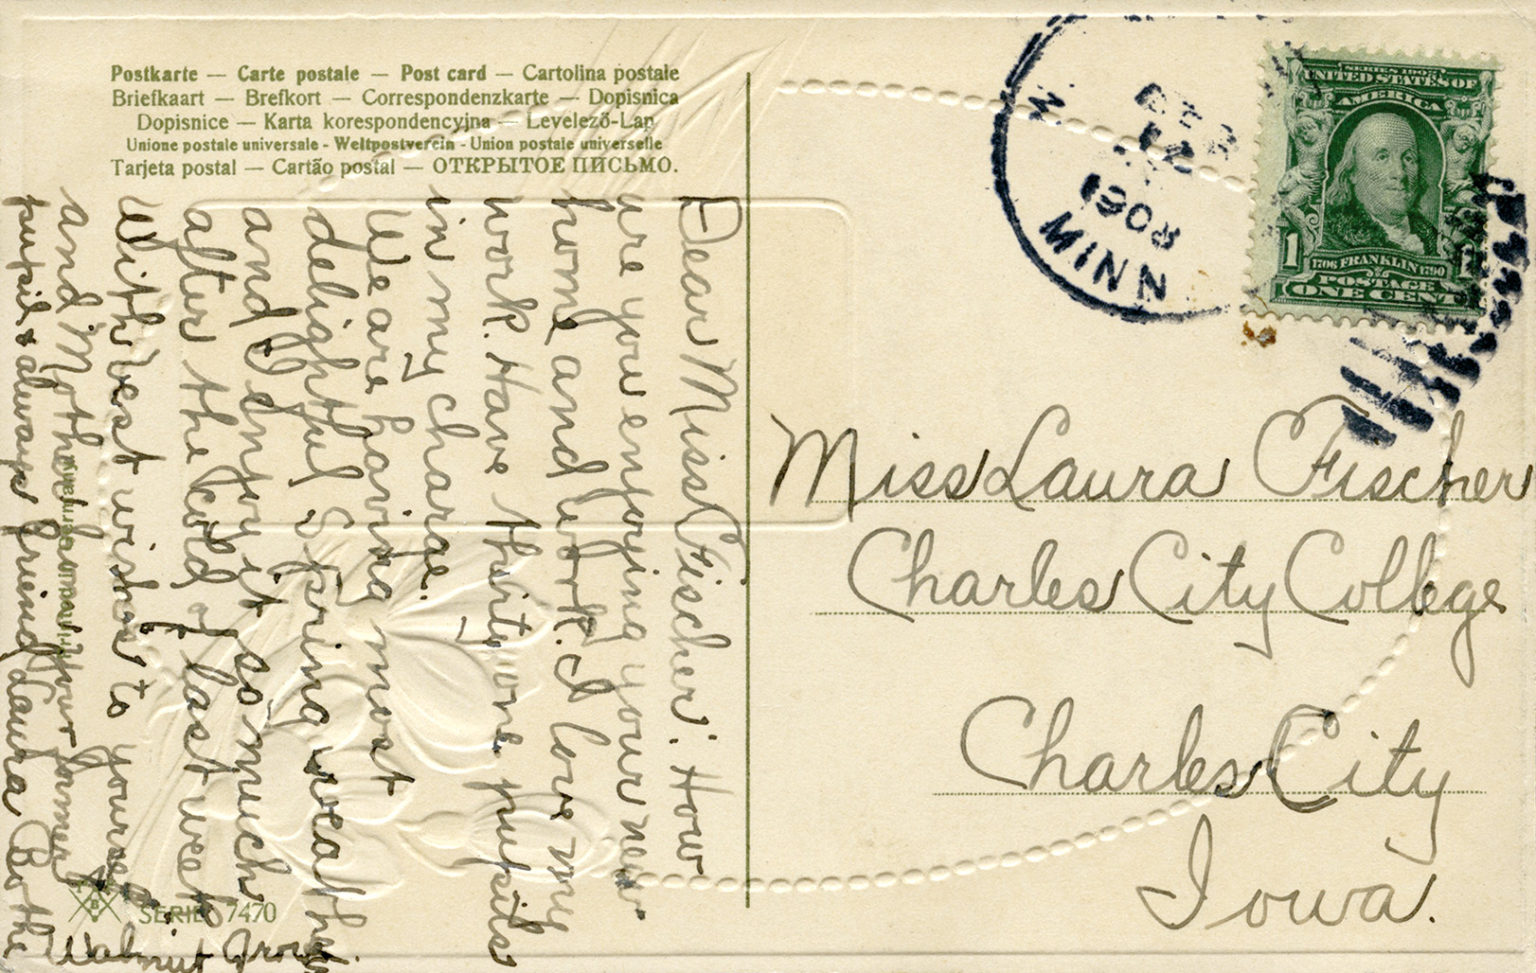 Postkarte — Carte postale — Post card — Cartolina postale
Briefkaart — Brefkort — Correspondenzkarte — Dopisnica
Dopisnice — Karta korespondencyjna — Levelező-Lap
Unione postale universale - Weltpostverein - Union postale universelle
Tarjeta postal — Cartão postal — ОТКРЫТОЕ ПИСЬМО.
Dear Miss Fischer: How
are you enjoying your new
home and work. I love my
work. Have thirty one pupils
in my charge.
We are having most
delightful Spring weather
and I enjoy it so much
after the cold of last week
With best wishes to yourself
and Mother your former
pupil & always friend Laura Bothe
Walnut Grove
SERIE 7470
FEB
12
1908
MINN
SERIES 1902
UNITED STATES OF
AMERICA
1 1
1706 FRANKLIN 1790
POSTAGE
ONE CENT
Miss Laura Fischer
Charles City College
Charles City
Iowa.